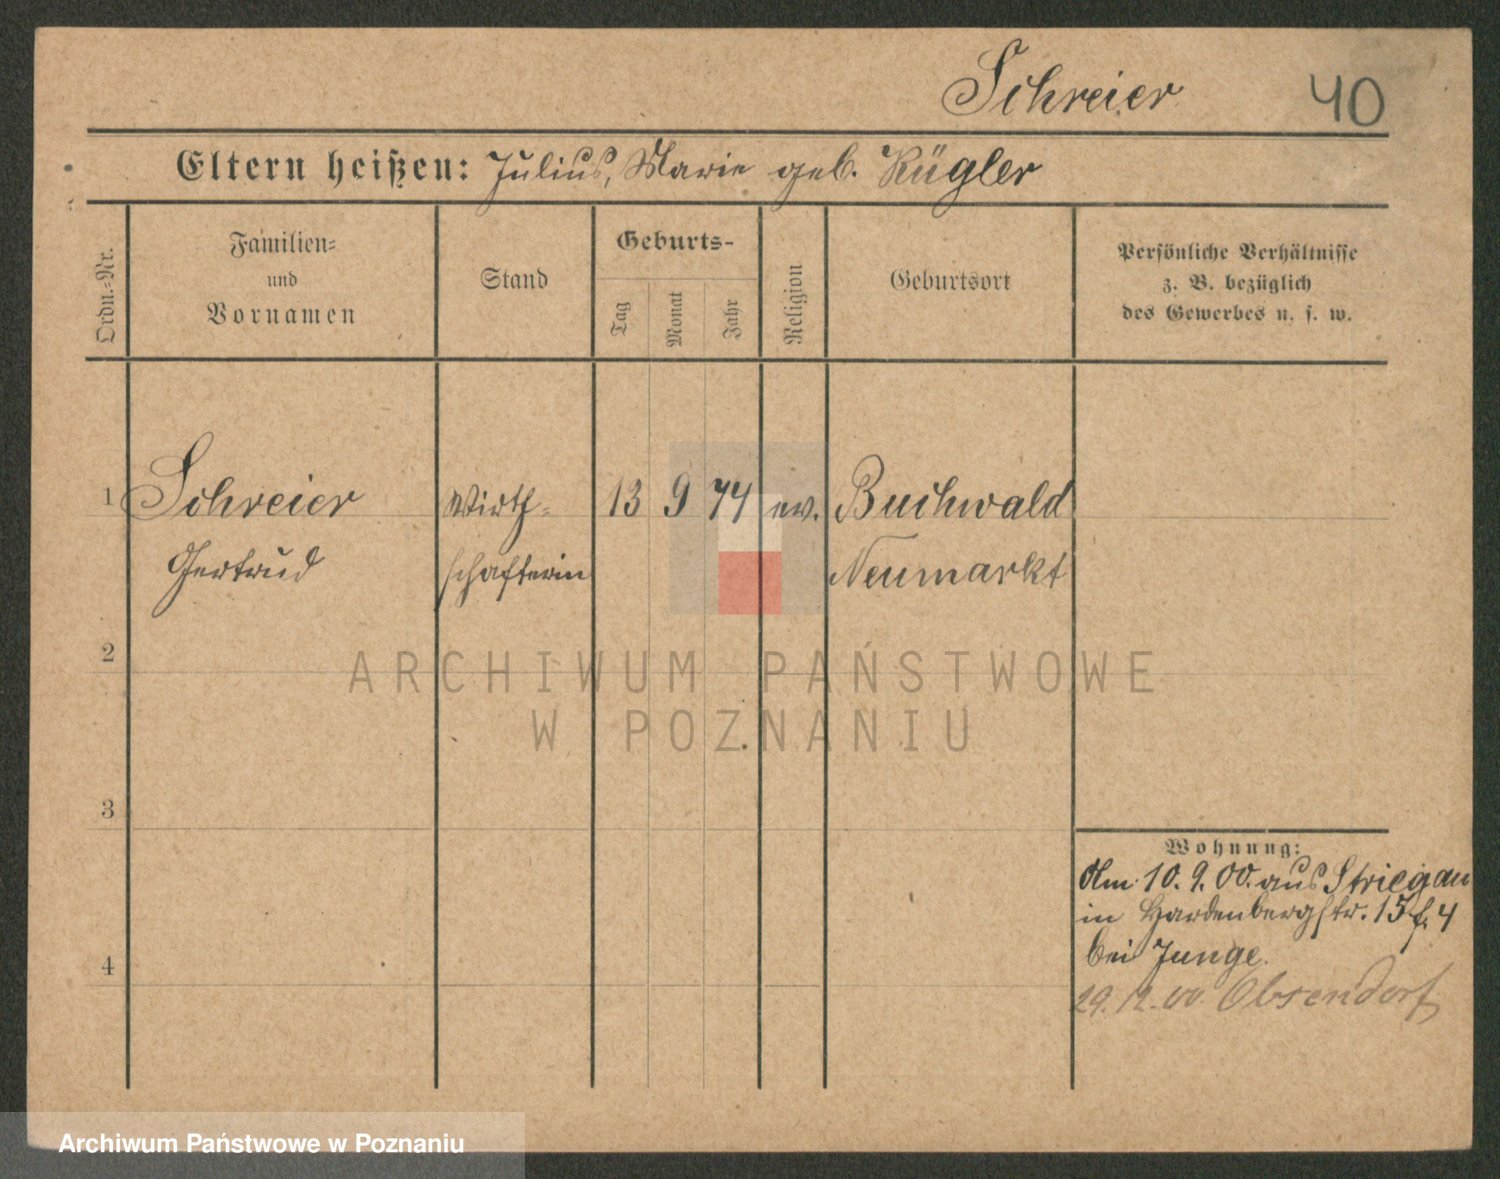 Schreier 40
Eltern heißen: Julius, Marie geb. Kügler
Ordn.=Nr.
Familien=
und
Vornamen
Stand
Geburts-
Tag
Monat
Jahr
Religion
Geburtsort
Persönliche Verhältnisse
z. B. bezüglich
des Gewerbes u. s. w.
1 Schreier Wirth= 13 9 74 ev. Buchwald
Gertrud schafterin Neumarkt
2
ARCHIWUM PAŃSTWOWE
W POZNANIU
3
Wohnung:
Am 10. 9. 00. aus Striegau
in Hardenbergstr. 15 f. 4
bei Junge.
4
29. 12. 00 Olsendorf
Archiwum Państwowe w Poznaniu